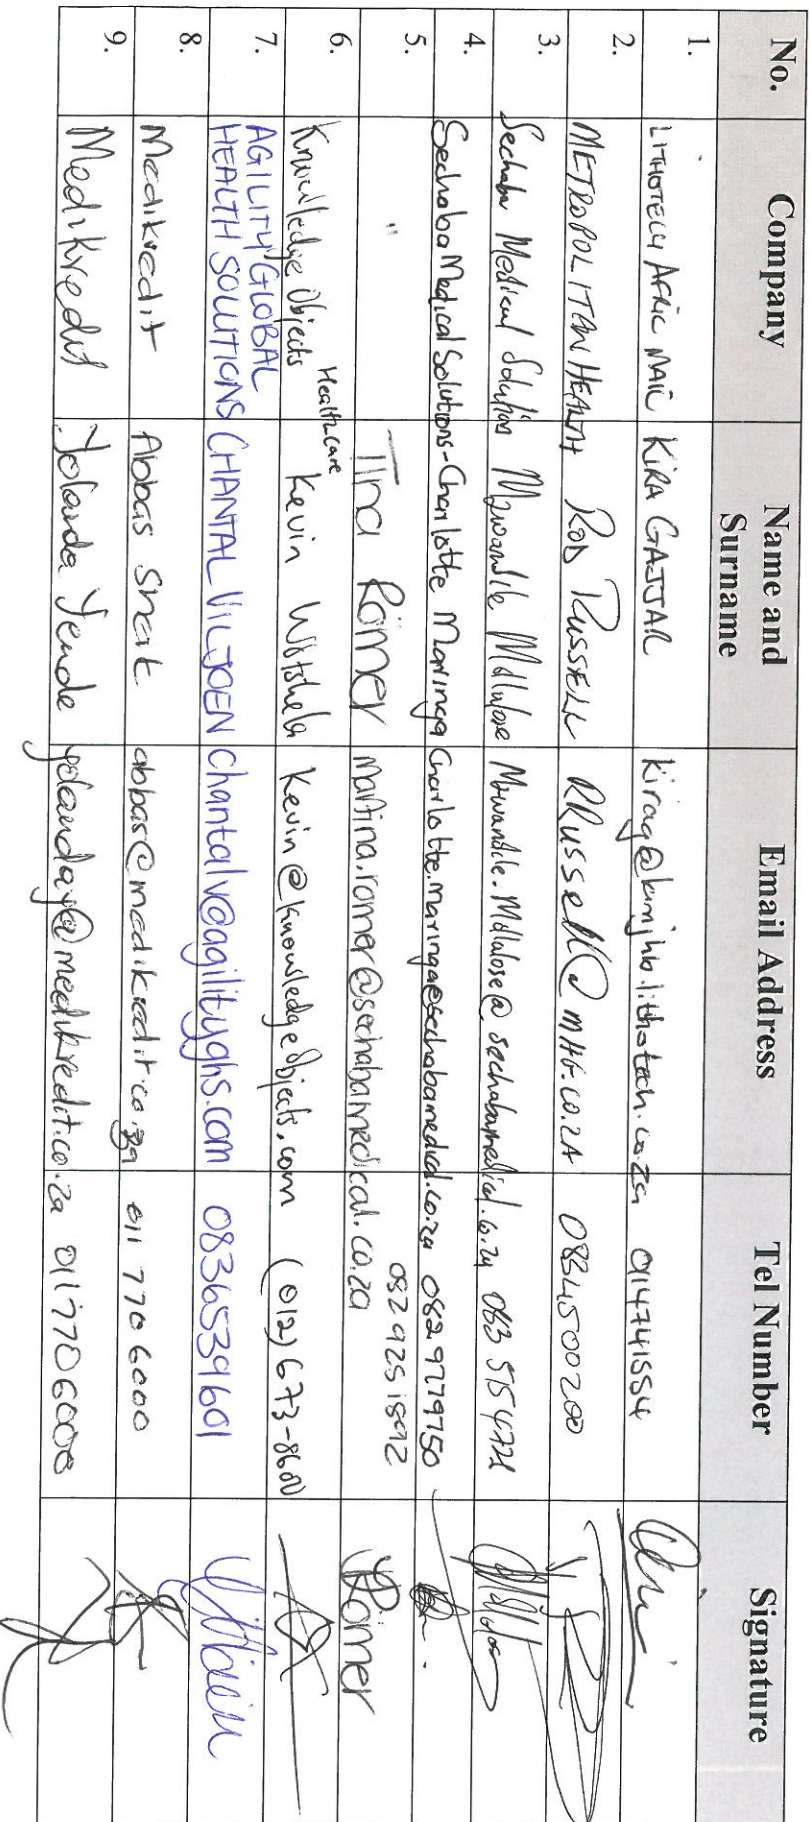 No. Company Name and Surname Email Address Tel Number Signature
1. LITHOTECH AFRIC MAIL KIRA GAJJAR kirag@kmjhb.lithotech.co.za 0114741554
2. METROPOLITAN HEALTH ROD RUSSELL RRussell@MHG.CO.ZA 0834500200
3. Sechaba Medical Solutions Mzwandile Mdlulose Mzwandile.Mdlulose@sechabamedical.co.za
4. Sechaba Medical Solutions - Charlotte Maringa Charlotte.maringa@sechabamedical.co.za 082 9779750
5. " Tina Römer martina.romer@sechabamedical.co.za 082 925 1892 Römer
6. Knowledge Objects Healthcare Kevin Kevin@knowledgeobjects.com (012) 673-8600
7. AGILITY GLOBAL HEALTH SOLUTIONS CHANTAL VILJOEN chantalv@agilityghs.com 0836539601
8. Medikredit Abbas abbas@medikredit.co.za 011 770 6000
9. Medikredit Yolanda Yende yolanday@medikredit.co.za 011 770 6000